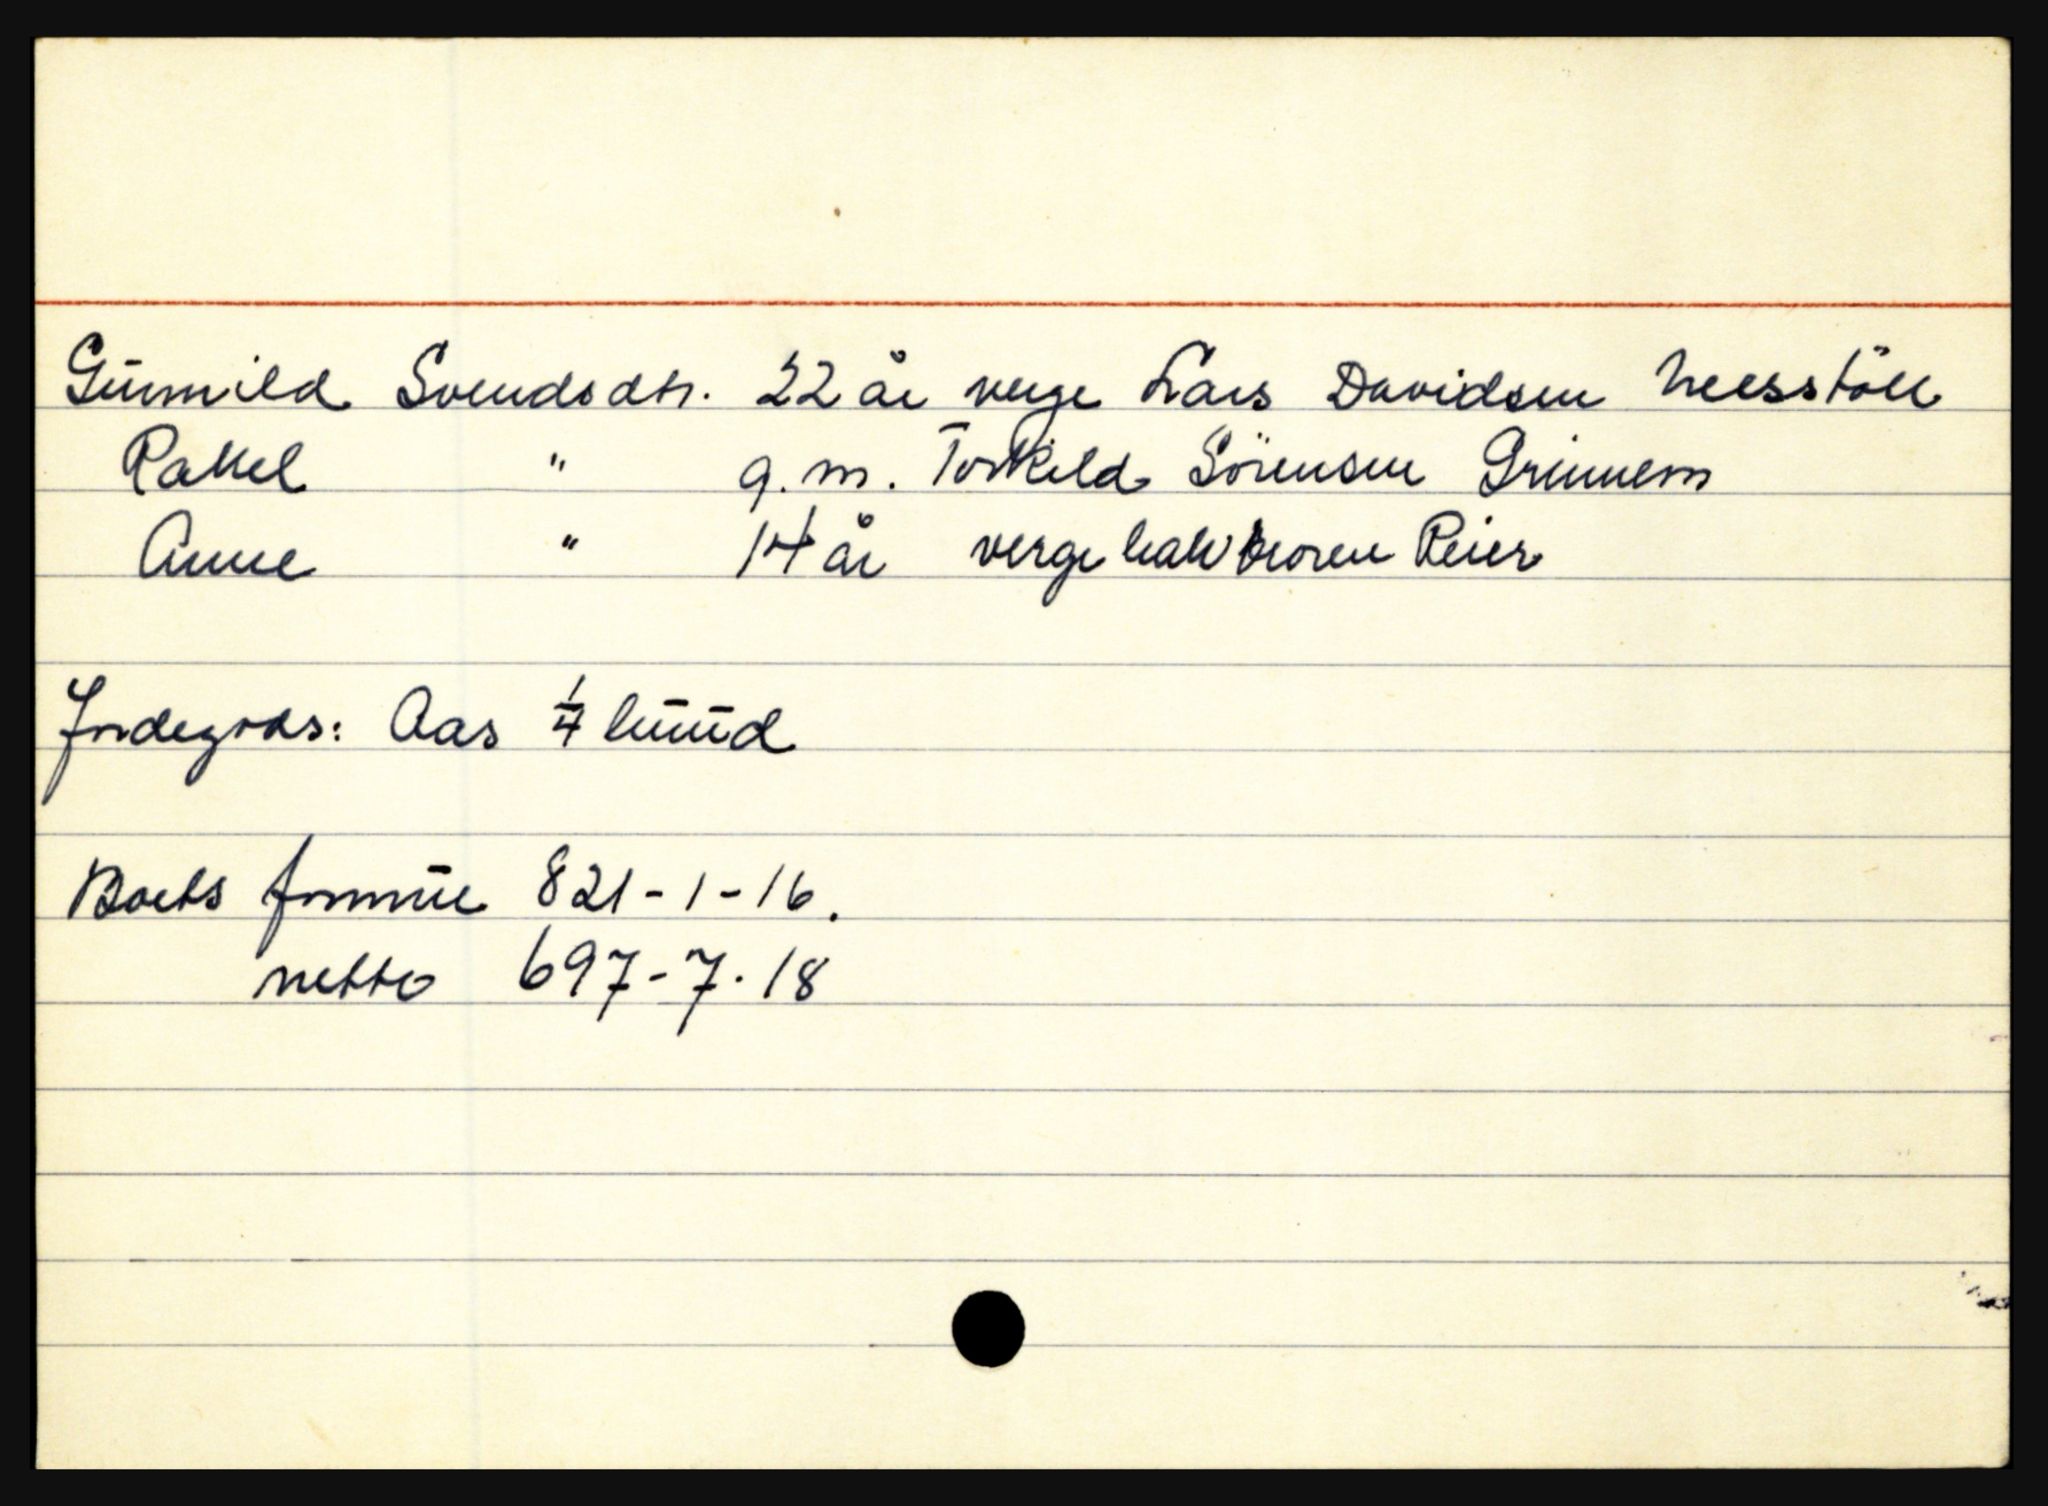 Gunnild Svendsdtr. 22 år verge Lars Davidsen Nesstöll
Rakkel " g. m. Torkild Sörensen Grinnem
Anne " 14 år verge halvbroren Reier
Jordegods: Aas 1/4 huud
Boets formue 821-1-16.
netto 697-7-18